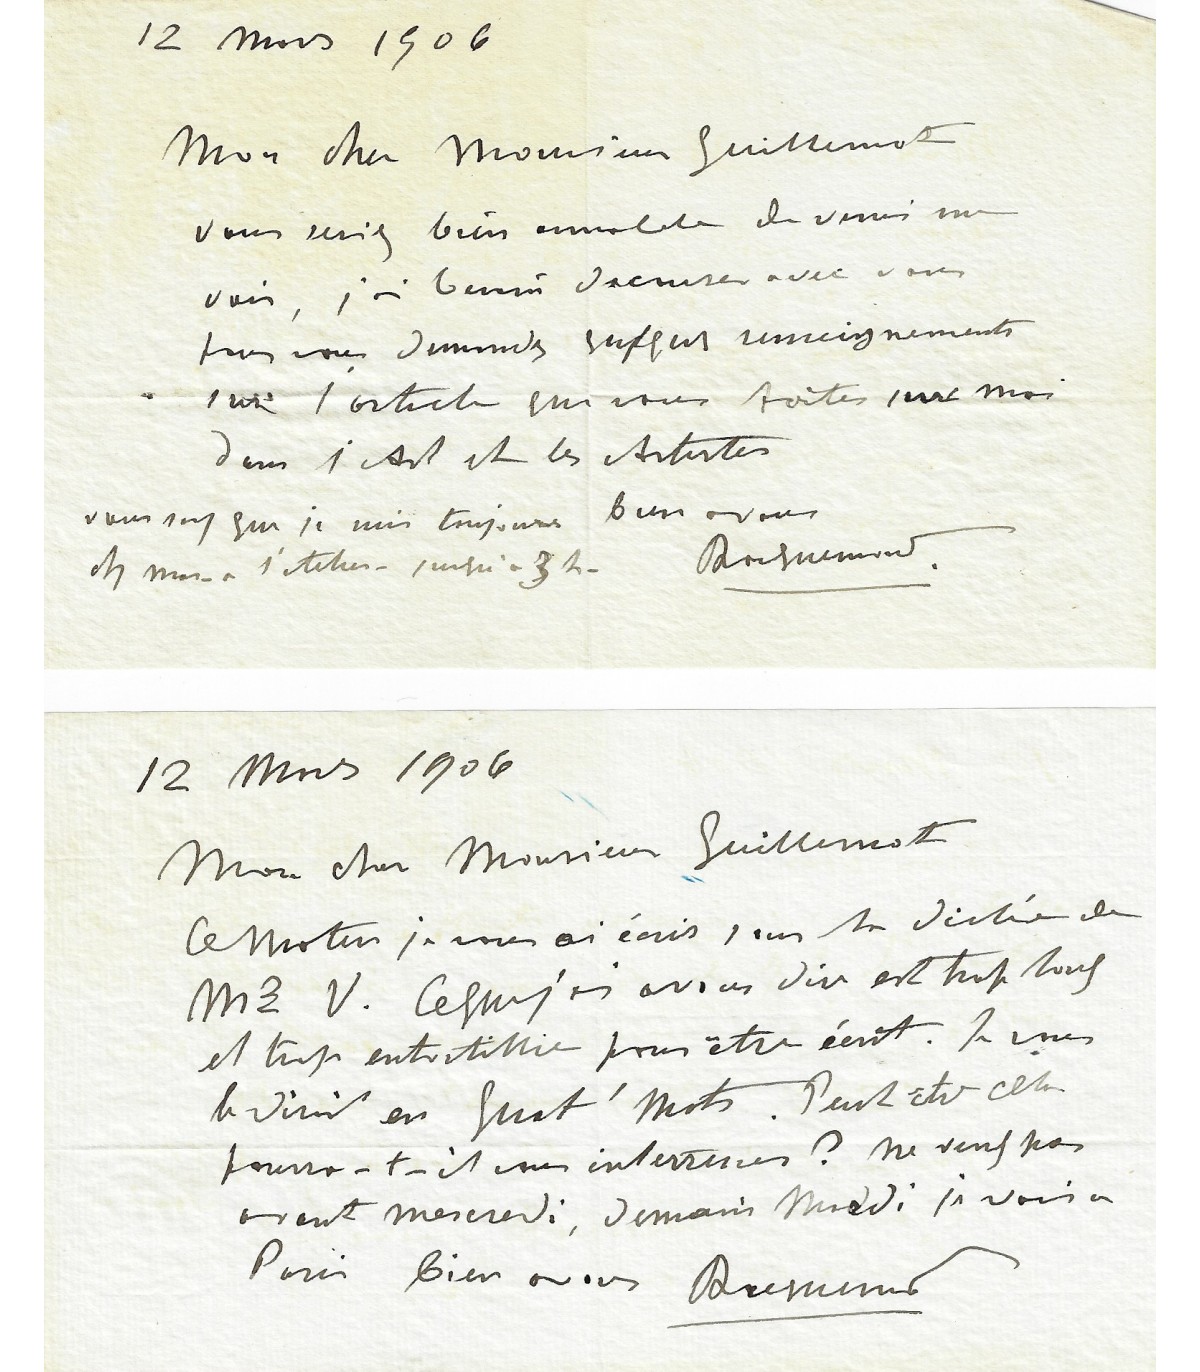 12 Mars 1906
Mon cher Monsieur Guillemot
vous seriez bien aimable de venir me
voir, j'ai besoin de causer avec vous
pour vous demander quelques renseignements
sur l'article que vous faites sur moi
dans l'Art et les Artistes
vous savez que je suis toujours bien a vous
chez moi a l'atelier jusqu'a 3 h - Bracquemond.
12 Mars 1906
Mon cher Monsieur Guillemot
Ce matin je vous ai écris sous la dictée de
M V. Ce que j'ai a vous dire est trop long
et trop entortillé pour être écrit. Je vous
le dirai en quat' mots. Peut être cela
pourra-t-il vous interresser? ne venez pas
avant mescredi, demain Mardi je vais a
Paris bien a vous Bracquemond